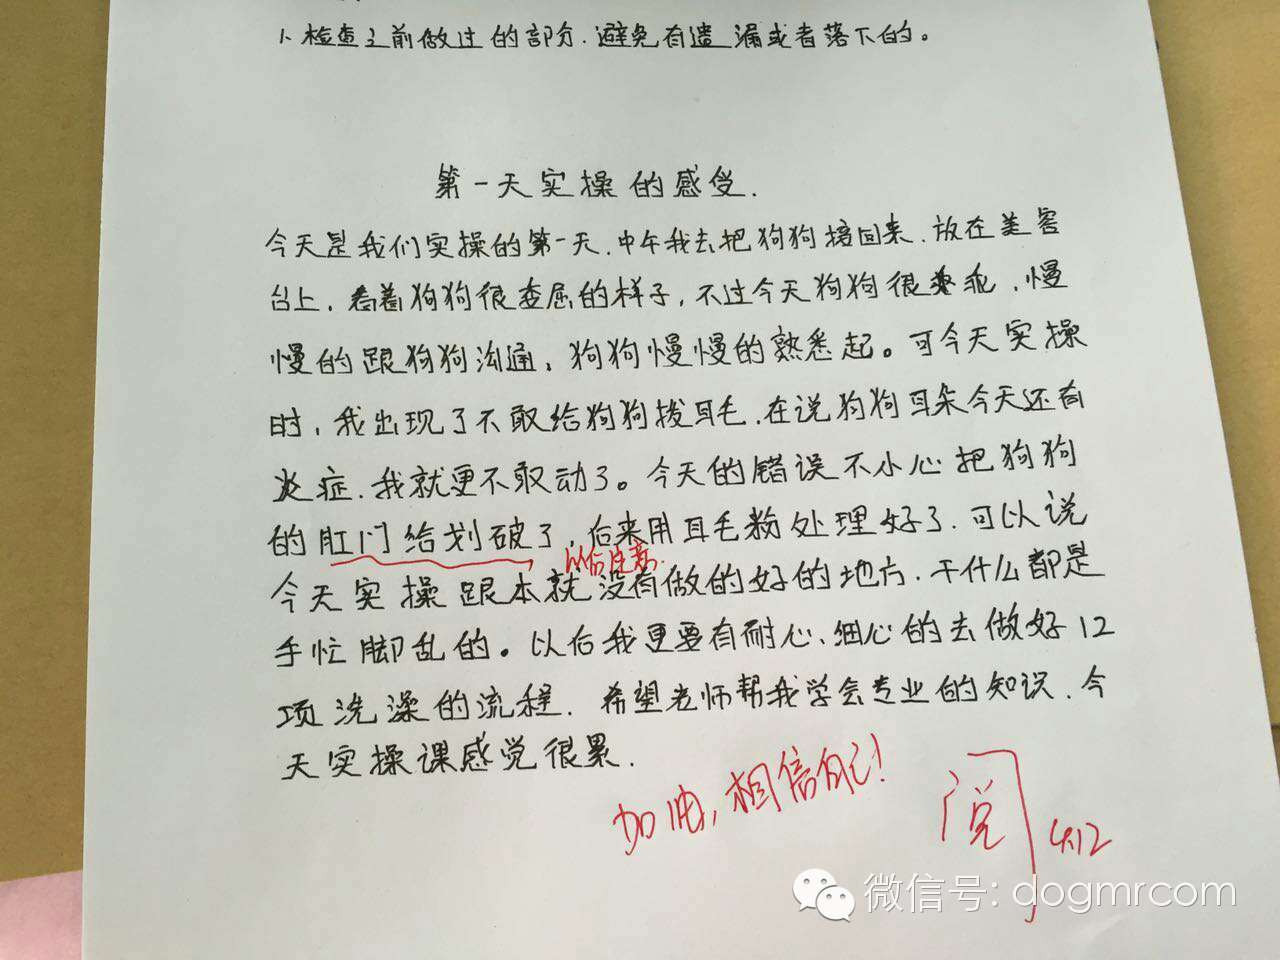 1、检查之前做过的部分.避免有遗漏或者落下的。
第一天实操的感受.
今天是我们实操的第一天.中午我去把狗狗接回来.放在美容
台上,看着狗狗很委屈的样子,不过今天狗狗很乖,慢
慢的跟狗狗沟通,狗狗慢慢的熟悉起。可今天实操
时,我出现了不敢给狗狗拨耳毛.在说狗狗耳朵今天还有
炎症.我就更不敢动了。今天的错误不小心把狗狗
的肛门给划破了,后来用耳毛粉处理好了.可以说
以后注意.
今天实操跟本就没有做的好的地方.干什么都是
手忙脚乱的。以后我更要有耐心、细心的去做好12
项洗澡的流程.希望老师帮我学会专业的知识.今
天实操课感觉很累.
加油,相信自己!
阅 4.12
微信号: dogmrcom